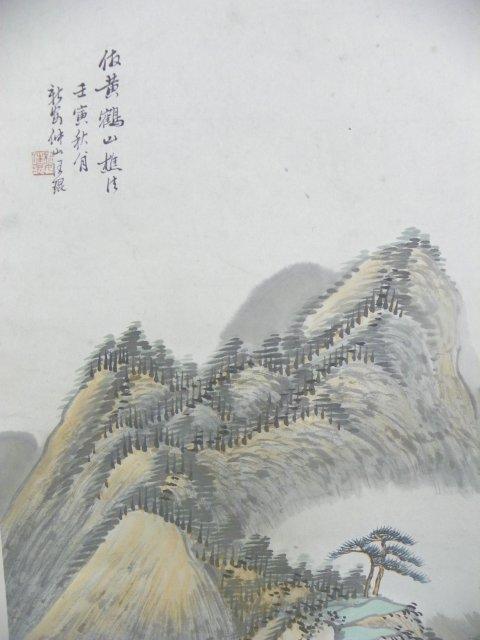 仿黄鶴山樵法
壬寅秋月
新安仲山汪琨